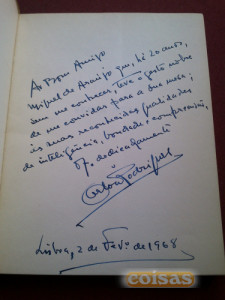 Ao Bom Amigo
Miguel de Araújo que, há 20 anos,
sem me conhecer, teve o gesto nobre
de me convidar para a sua mesa;
às suas reconhecidas qualidades
de inteligência, bondade e compreensão,
Of. dedicadamente
Carlos Rodrigues
Lisboa, 2 de Fevº. de 1968
coisas